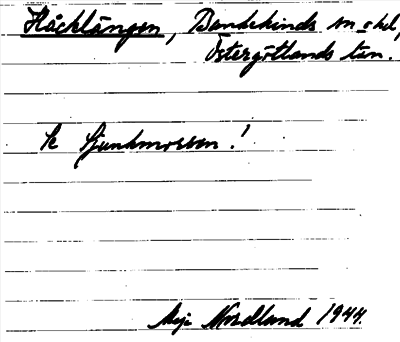 Häcklängen, Bankekinds sn o hd,
Östergötlands län.
Se Sjunkmossen!
Maja Nordland 1944.